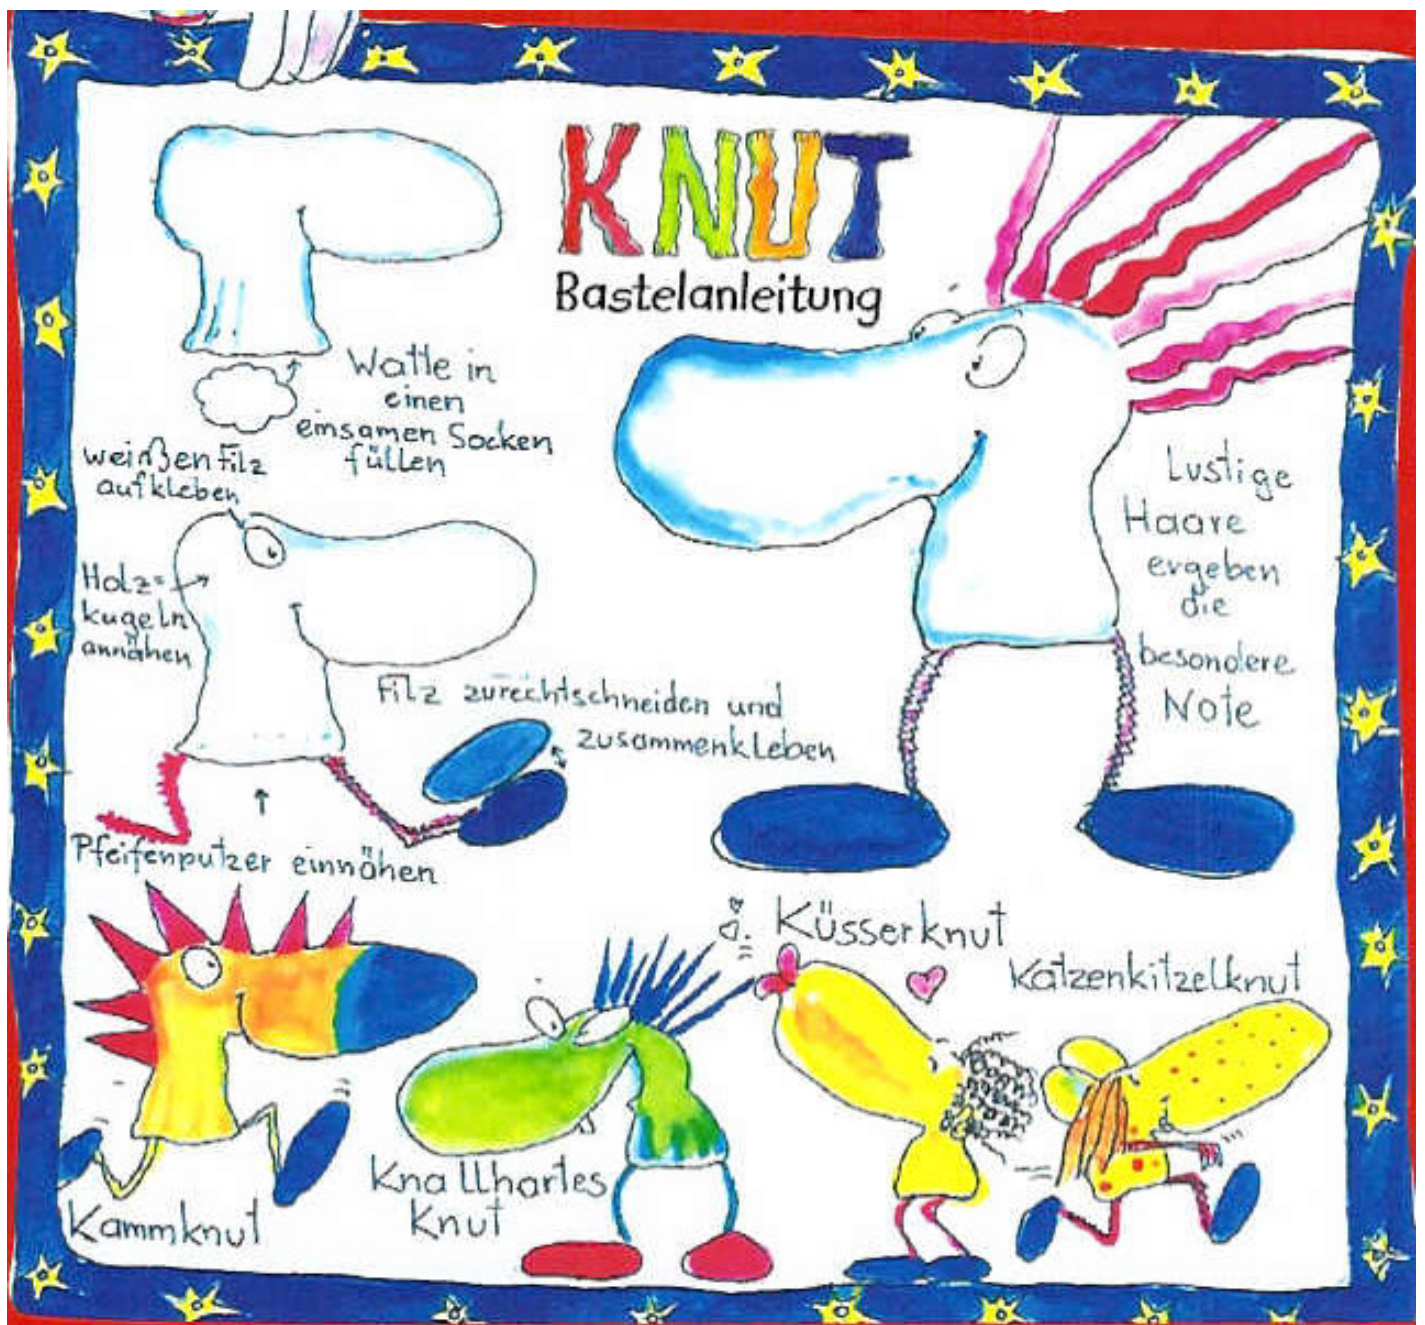 KNUT
Bastelanleitung
Watte in
einen
einsamen Socken
füllen
weißen Filz
aufkleben
Holz=
kugeln
annähen
Filz zurechtschneiden und
zusammenkleben
Pfeifenputzer einnähen
Lustige
Haare
ergeben
die
besondere
Note
Kammknut
Knallhartes
Knut
Küsserknut
Katzenkitzelknut